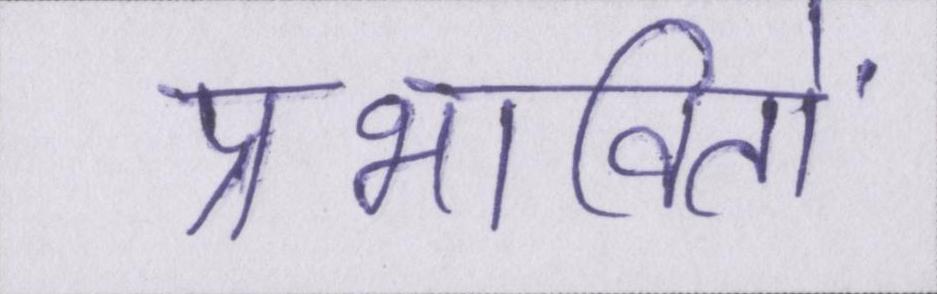 प्रभावितों